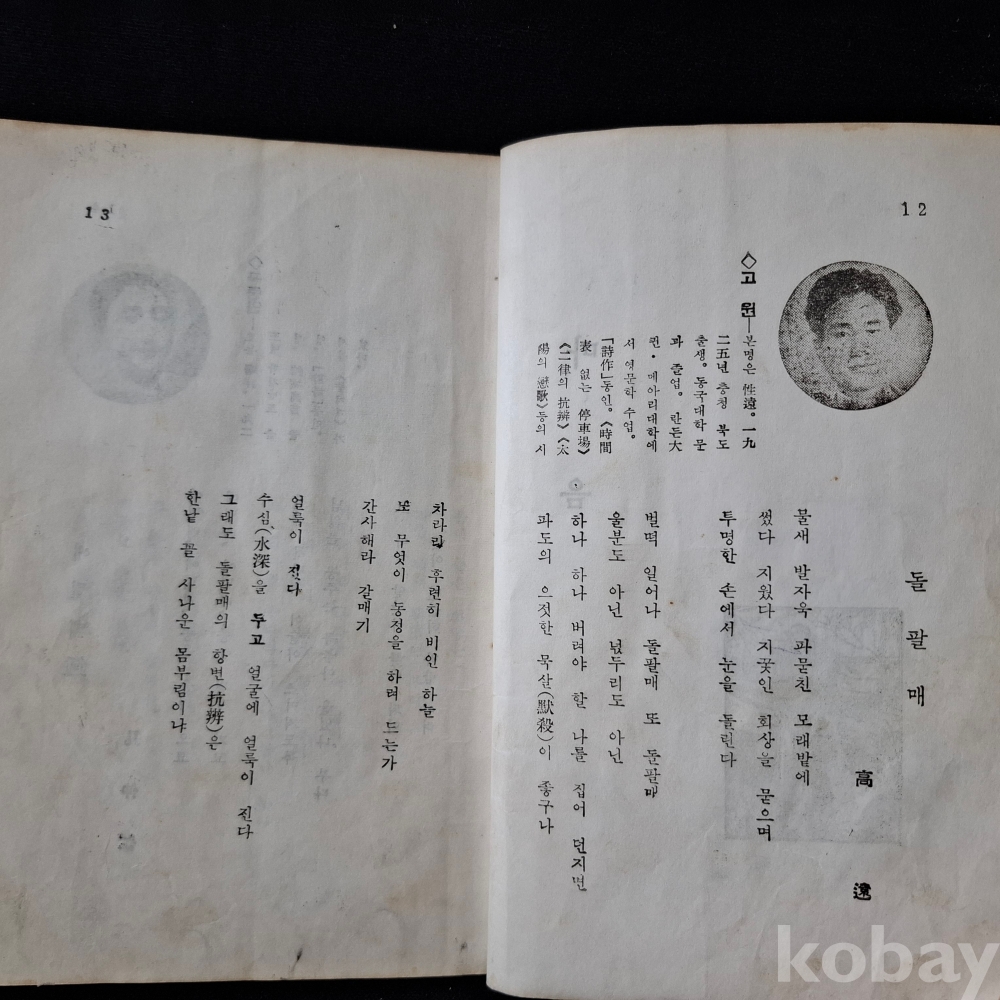 12
돌팔매
高遠
◇고원—본명은 性遠。一九
二五년 충청 북도
출생。동국대학 문
과 졸업。란든大
퀸・메아리대학에
서 영문학 수업。
「詩作」동인。《時間
表 없는 停車場》
《二律의 抗辨》《太
陽의 戀歌》등의 시
물새 발자욱 파묻친 모래밭에
썼다 지웠다 지꿎인 회상을 묻으며
투명한 손에서 눈을 돌린다
벌떡 일어나 돌팔매 또 돌팔매
울분도 아닌 넋두리도 아닌
하나 하나 버려야 할 나를 집어 던지면
파도의 으젓한 묵살(默殺)이 좋구나
13
차라리 후련히 비인 하늘
또 무엇이 동정을 하려 드는가
간사해라 갈매기
얼룩이 진다
수심(水深)을 두고 얼굴에 얼룩이 진다
그래도 돌팔매의 항변(抗辨)은
한낱 꼴 사나운 몸부림이냐
kobay